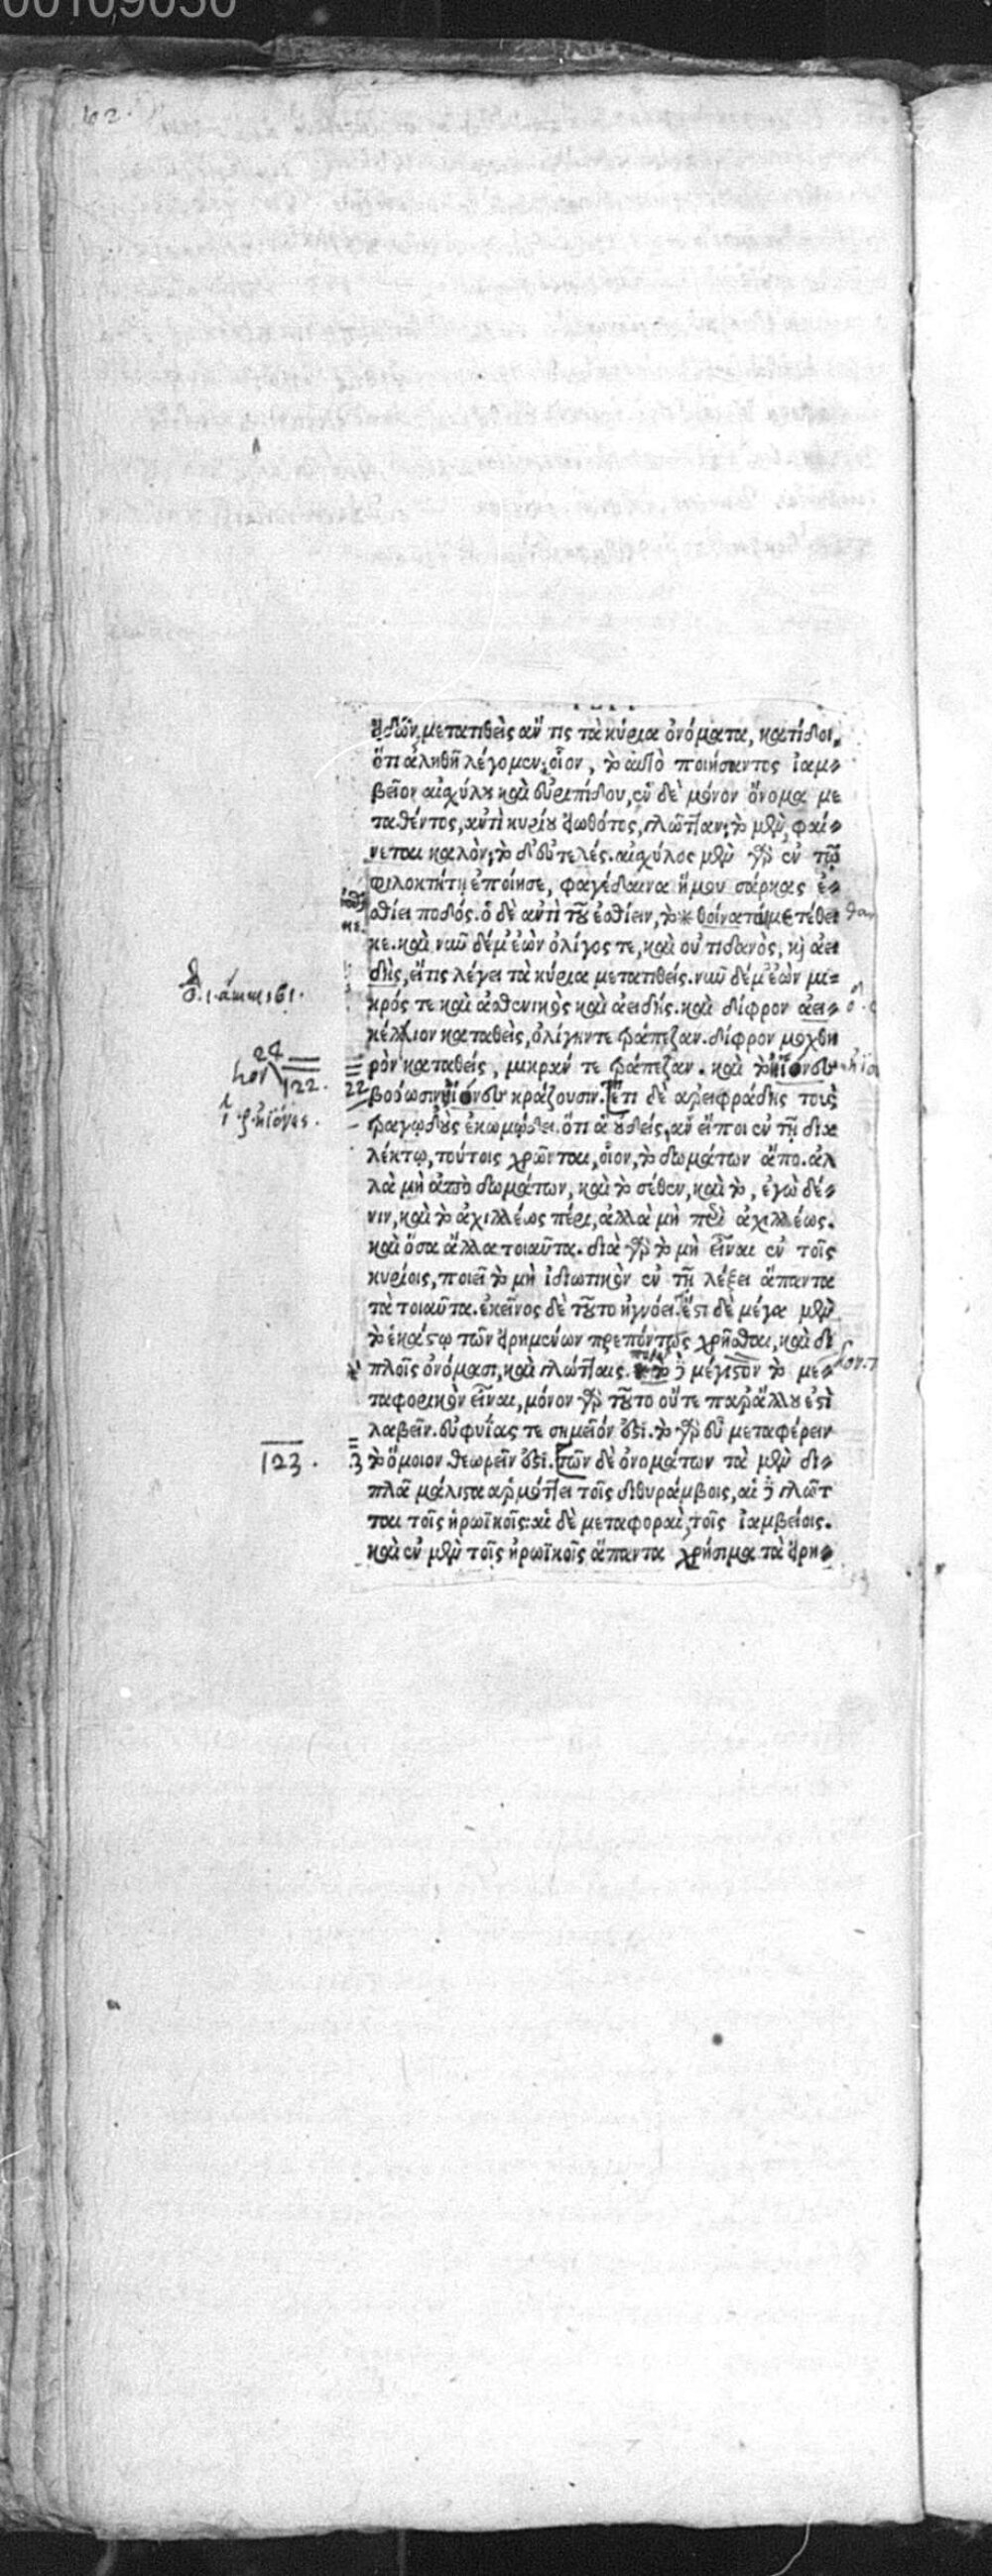 62.
εἰδῶν, μετατιθεὶς ἄν τις τὰ κύρια ὀνόματα, κατίδοι,
ὅτι ἀληθῆ λέγομεν· οἷον, τὸ αὐτὸ ποιήσαντος ἰαμ-
βεῖον αἰσχύλου καὶ εὐριπίδου, ἓν δὲ μόνον ὄνομα με
ταθέντος, ἀντὶ κυρίου εἰωθότος, γλῶτταν· τὸ μὲν φαί-
νεται καλὸν· τὸ δ' εὐτελές. αἰσχύλος μὲν γὰρ ἐν τῷ
φιλοκτήτῃ ἐποίησε, φαγέδαινα ἥ μου σάρκας ἐ-
σθίει ποδός. ὁ δὲ ἀντὶ τοῦ ἐσθίειν, τὸ * θοίναται μετέθει
κε. καὶ νῦν δέ μ' ἐὼν ὀλίγος τε, καὶ οὐτιδανὸς, καὶ ἀει
δὴς, εἴτις λέγει τὰ κύρια μετατιθείς. νῦν δέ μ' ἐὼν μι-
κρός τε καὶ ἀσθενικὸς καὶ ἀειδής. καὶ δίφρον ἀει-
κέλλιον καταθεὶς, ὀλίγην τε τράπεζαν. δίφρον μοχθη
ρὸν καταθείς, μικράν τε τράπεζαν. καὶ τὸ ἠϊόνες
βοόωσιν ἠϊόνες κράζουσιν. [ἔτι δὲ ἀρειφράδης τοὺς
τραγῳδοὺς ἐκωμῴδει. ὅτι ἃ οὐδεὶς, ἂν εἴποι ἐν τῇ δια
λέκτῳ, τούτοις χρῶνται, οἷον, τὸ δωμάτων ἄπο. ἀλ
λὰ μὴ ἀπὸ δωμάτων, καὶ τὸ σέθεν, καὶ τὸ, ἐγὼ δέ-
νιν, καὶ τὸ ἀχιλλέως πέρι, ἀλλὰ μὴ περὶ ἀχιλλέως.
καὶ ὅσα ἄλλα τοιαῦτα. διὰ γὰρ τὸ μὴ εἶναι ἐν τοῖς
κυρίοις, ποιεῖ τὸ μὴ ἰδιωτικὸν ἐν τῇ λέξει ἅπαντα
τὰ τοιαῦτα. ἐκεῖνος δὲ τοῦτο ἠγνόει. ἔστι δὲ μέγα μὲν
τὸ ἑκάστῳ τῶν εἰρημένων πρεπόντως χρῆσθαι, καὶ δι
πλοῖς ὀνόμασι, καὶ γλώτταις. δὲ μέγιστον τὸ με-
ταφορικὸν εἶναι, μόνον γὰρ τοῦτο οὔτε παρ' ἄλλου ἐστὶ
λαβεῖν. εὐφυΐας τε σημεῖόν ἐστι. τὸ γὰρ εὖ μεταφέρειν
τὸ ὅμοιον θεωρεῖν ἐστι. [τῶν δὲ ὀνομάτων τὰ μὲν δι-
πλᾶ μάλιστα ἁρμόττει τοῖς διθυράμβοις, αἱ δὲ γλῶτ
ται τοῖς ἡρωϊκοῖς: αἱ δὲ μεταφοραὶ, τοῖς ἰαμβείοις.
καὶ ἐν μὲν τοῖς ἡρωϊκοῖς ἅπαντα χρήσιμα τὰ εἰρη-
24
122.
22
ἠϊόνες.
123.
3